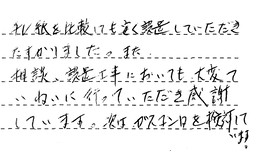 も比較しても安く設定していただき
たすかりました。また
相談、設置工事においても大変て
いねいに行っていただき感謝
しています。次はガスコンロを検討して
います!